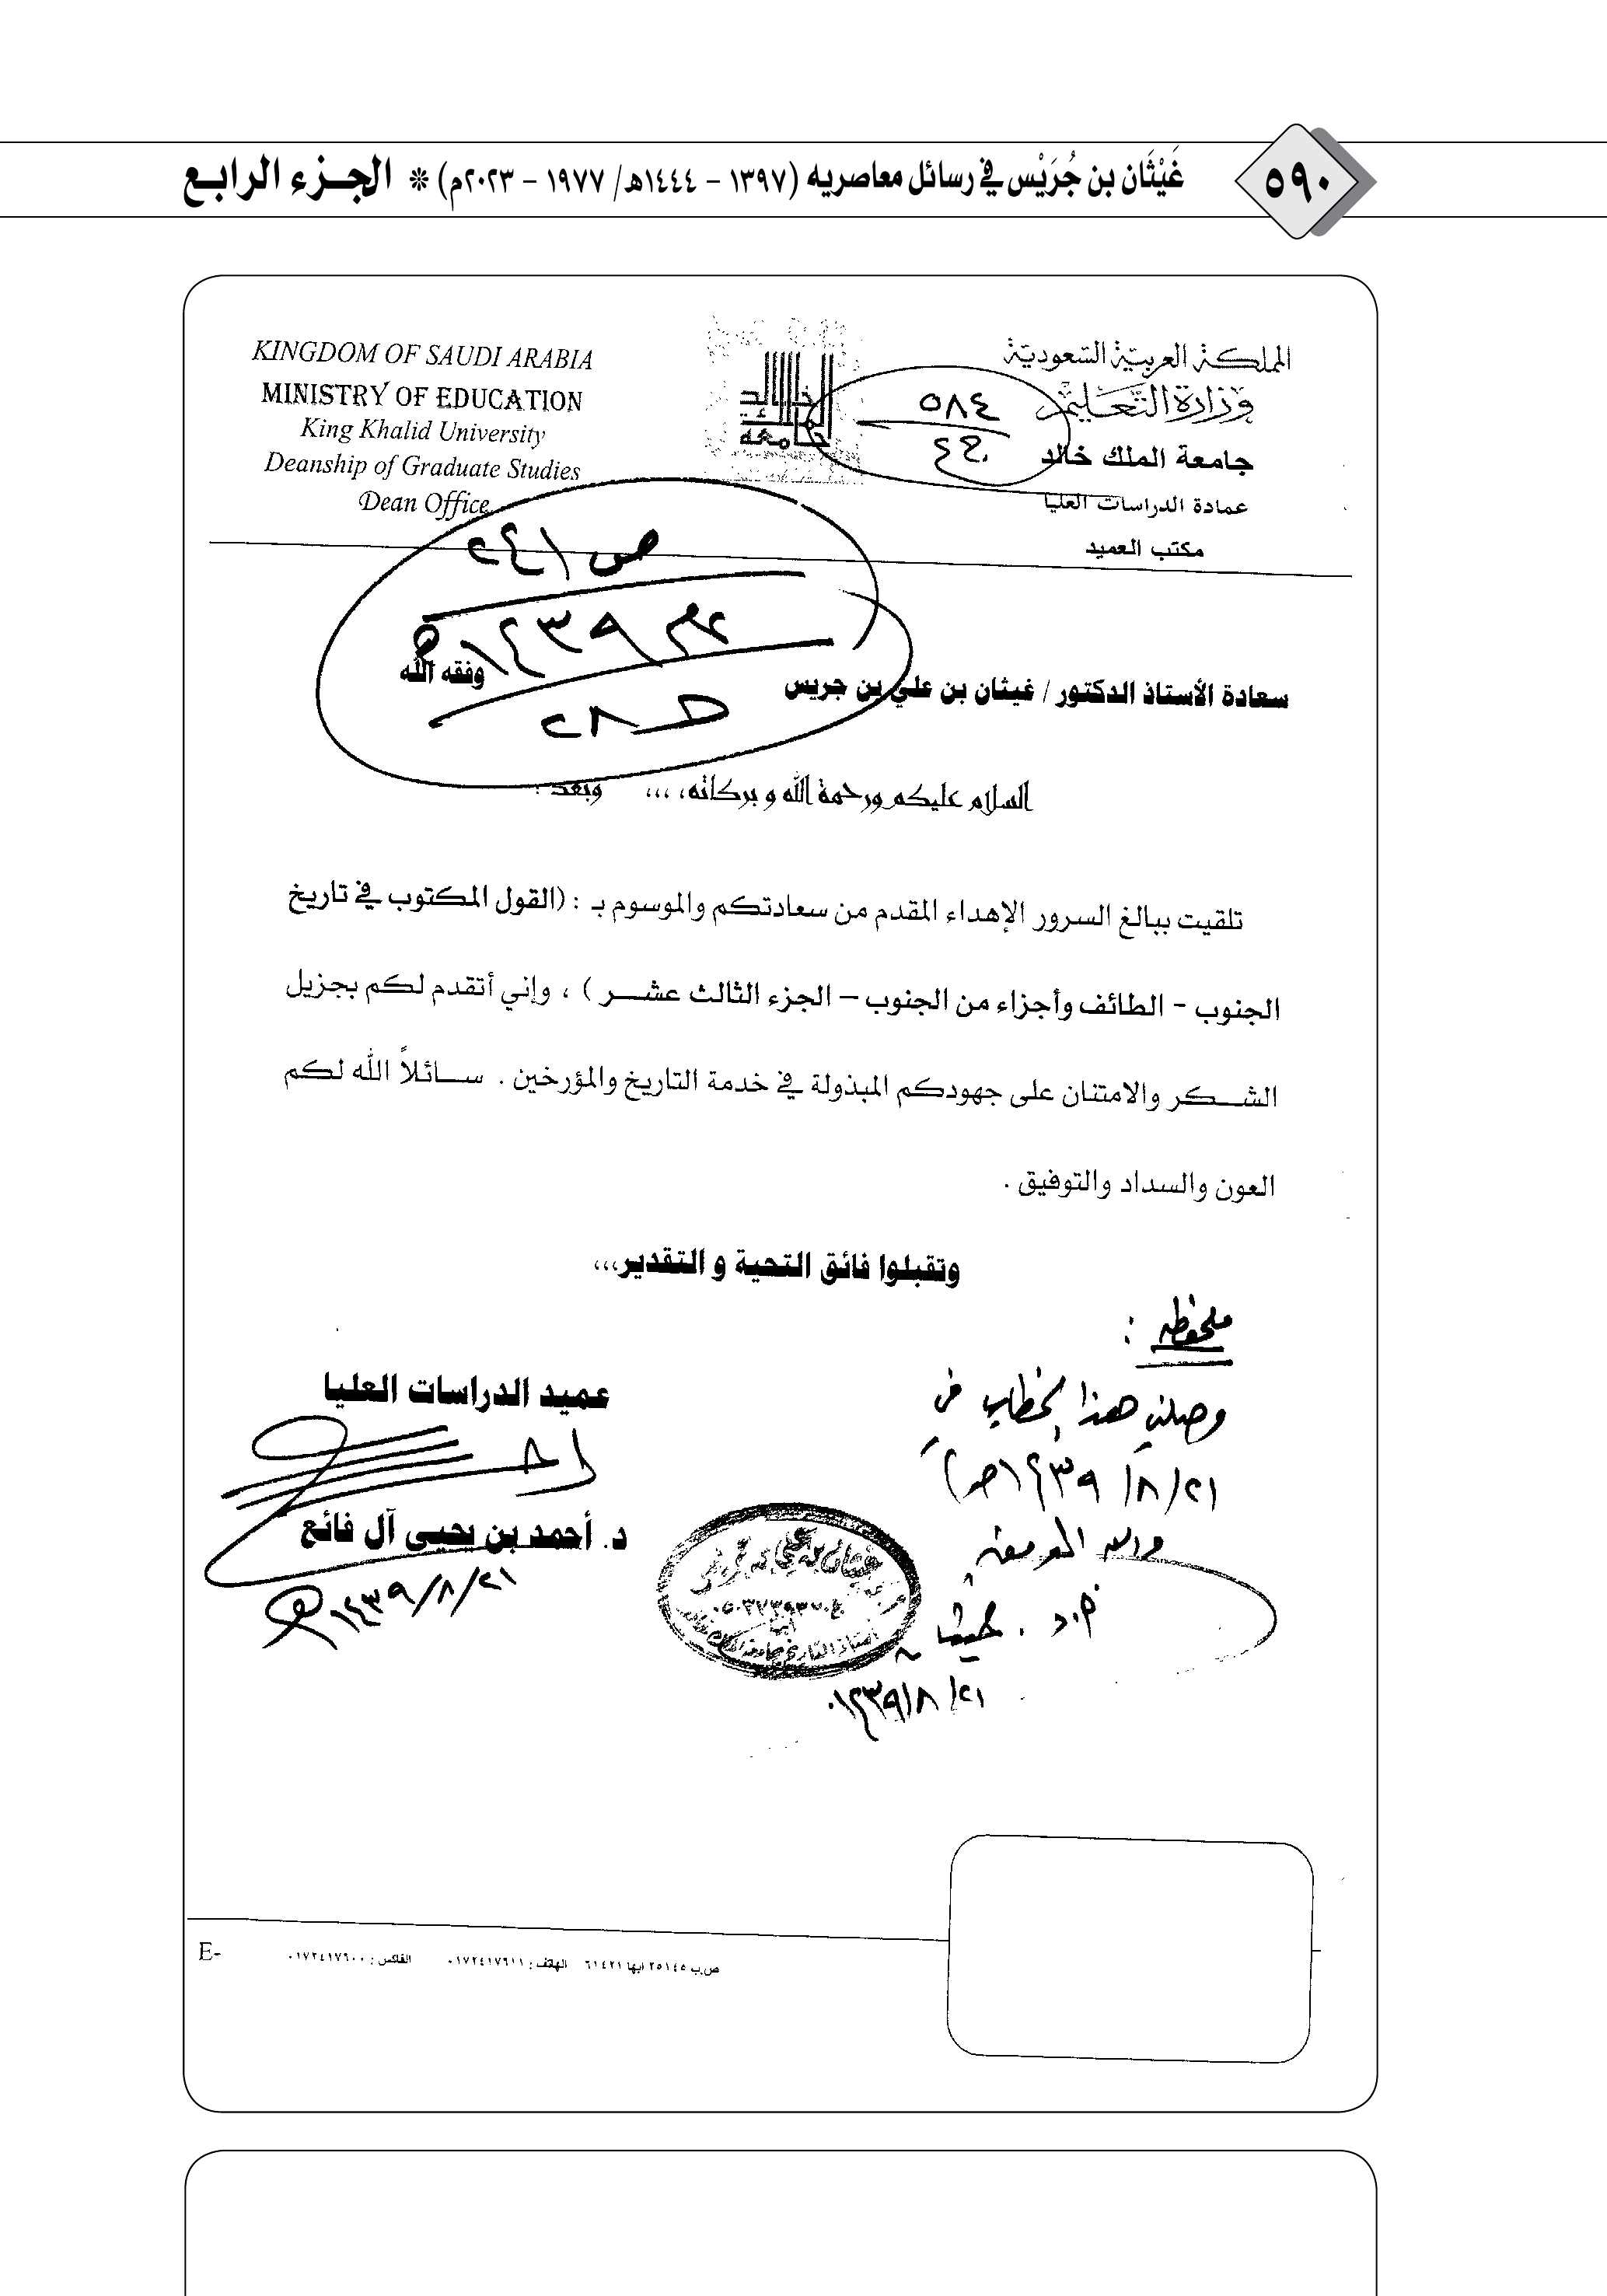 ٥٩٠
غَيْثَان بن جُرَيْس في رسائل معاصريه (١٣٩٧ - ١٤٤٤هـ/ ١٩٧٧ - ٢٠٢٣م) * الجـزء الرابـع
المملكة العربية السعودية
وزارة التعليم
جامعة الملك خالد
عمادة الدراسات العليا
مكتب العميد
KINGDOM OF SAUDI ARABIA
MINISTRY OF EDUCATION
King Khalid University
Deanship of Graduate Studies
Dean Office
جامعة
الملك خالد
٥٨٤
ص ٢٤١
١٤٣٩هـ
سعادة الأستاذ الدكتور / غيثان بن علي بن جريس وفقه الله
السلام عليكم ورحمة الله و بركاته، ،،، وبعد :
تلقيت ببالغ السرور الإهداء المقدم من سعادتكم والموسوم بـ : (القول المكتوب في تاريخ
الجنوب - الطائف وأجزاء من الجنوب – الجزء الثالث عشـــر ) ، وإني أتقدم لكم بجزيل
الشــكر والامتنان على جهودكم المبذولة في خدمة التاريخ والمؤرخين . ســائلاً الله لكم
العون والسداد والتوفيق .
وتقبلوا فائق التحية و التقدير،،،
ملحوظه :
وصلني هذا الخطاب في
٢١/ ٨/ ١٤٣٩هـ)
والله الموفق
أ.د. غيثان
٢١/ ٨/ ١٤٣٩
عميد الدراسات العليا
د. أحمد بن يحيى آل فائع
٢١/٨/١٤٣٩هـ
غيثان بن علي بن جريس
ص.ب ٢٥١٤٥ أبها ٦١٤٢١ الهاتف : ٠١٧٢٤١٧٦١١ الفاكس : ٠١٧٢٤١٧٦٠٠
E-